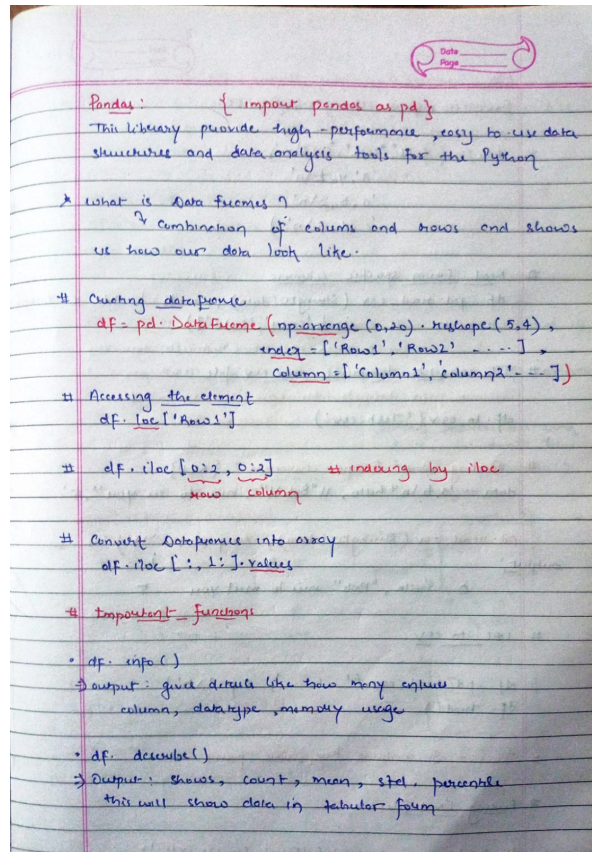 Date
Page
Pandas : { import pandas as pd }
This library provide high-performance, easy to use data
structures and data analysis tools for the Python
* what is Data frames ?
↳ combination of colums and rows and shows
us how our data look like.
# Creating dataframe
df = pd. DataFrame (np.arrange (0,20) . reshape (5,4),
index = ['Row1', 'Row2' - - - -],
column = ['Column1', 'column2' - - -])
# Accessing the element
df. loc ['Row1']
# df. iloc [0:2, 0:2] # indexing by iloc
row column
# Convert Dataframes into array
df. iloc [:, 1:]. values
# Important functions
• df. info ( )
⇒ output : gives details like how many entries
column, datatype, memory usage
• df. describe( )
⇒ Output : shows, count, mean, std. percentile
this will show data in tabular form